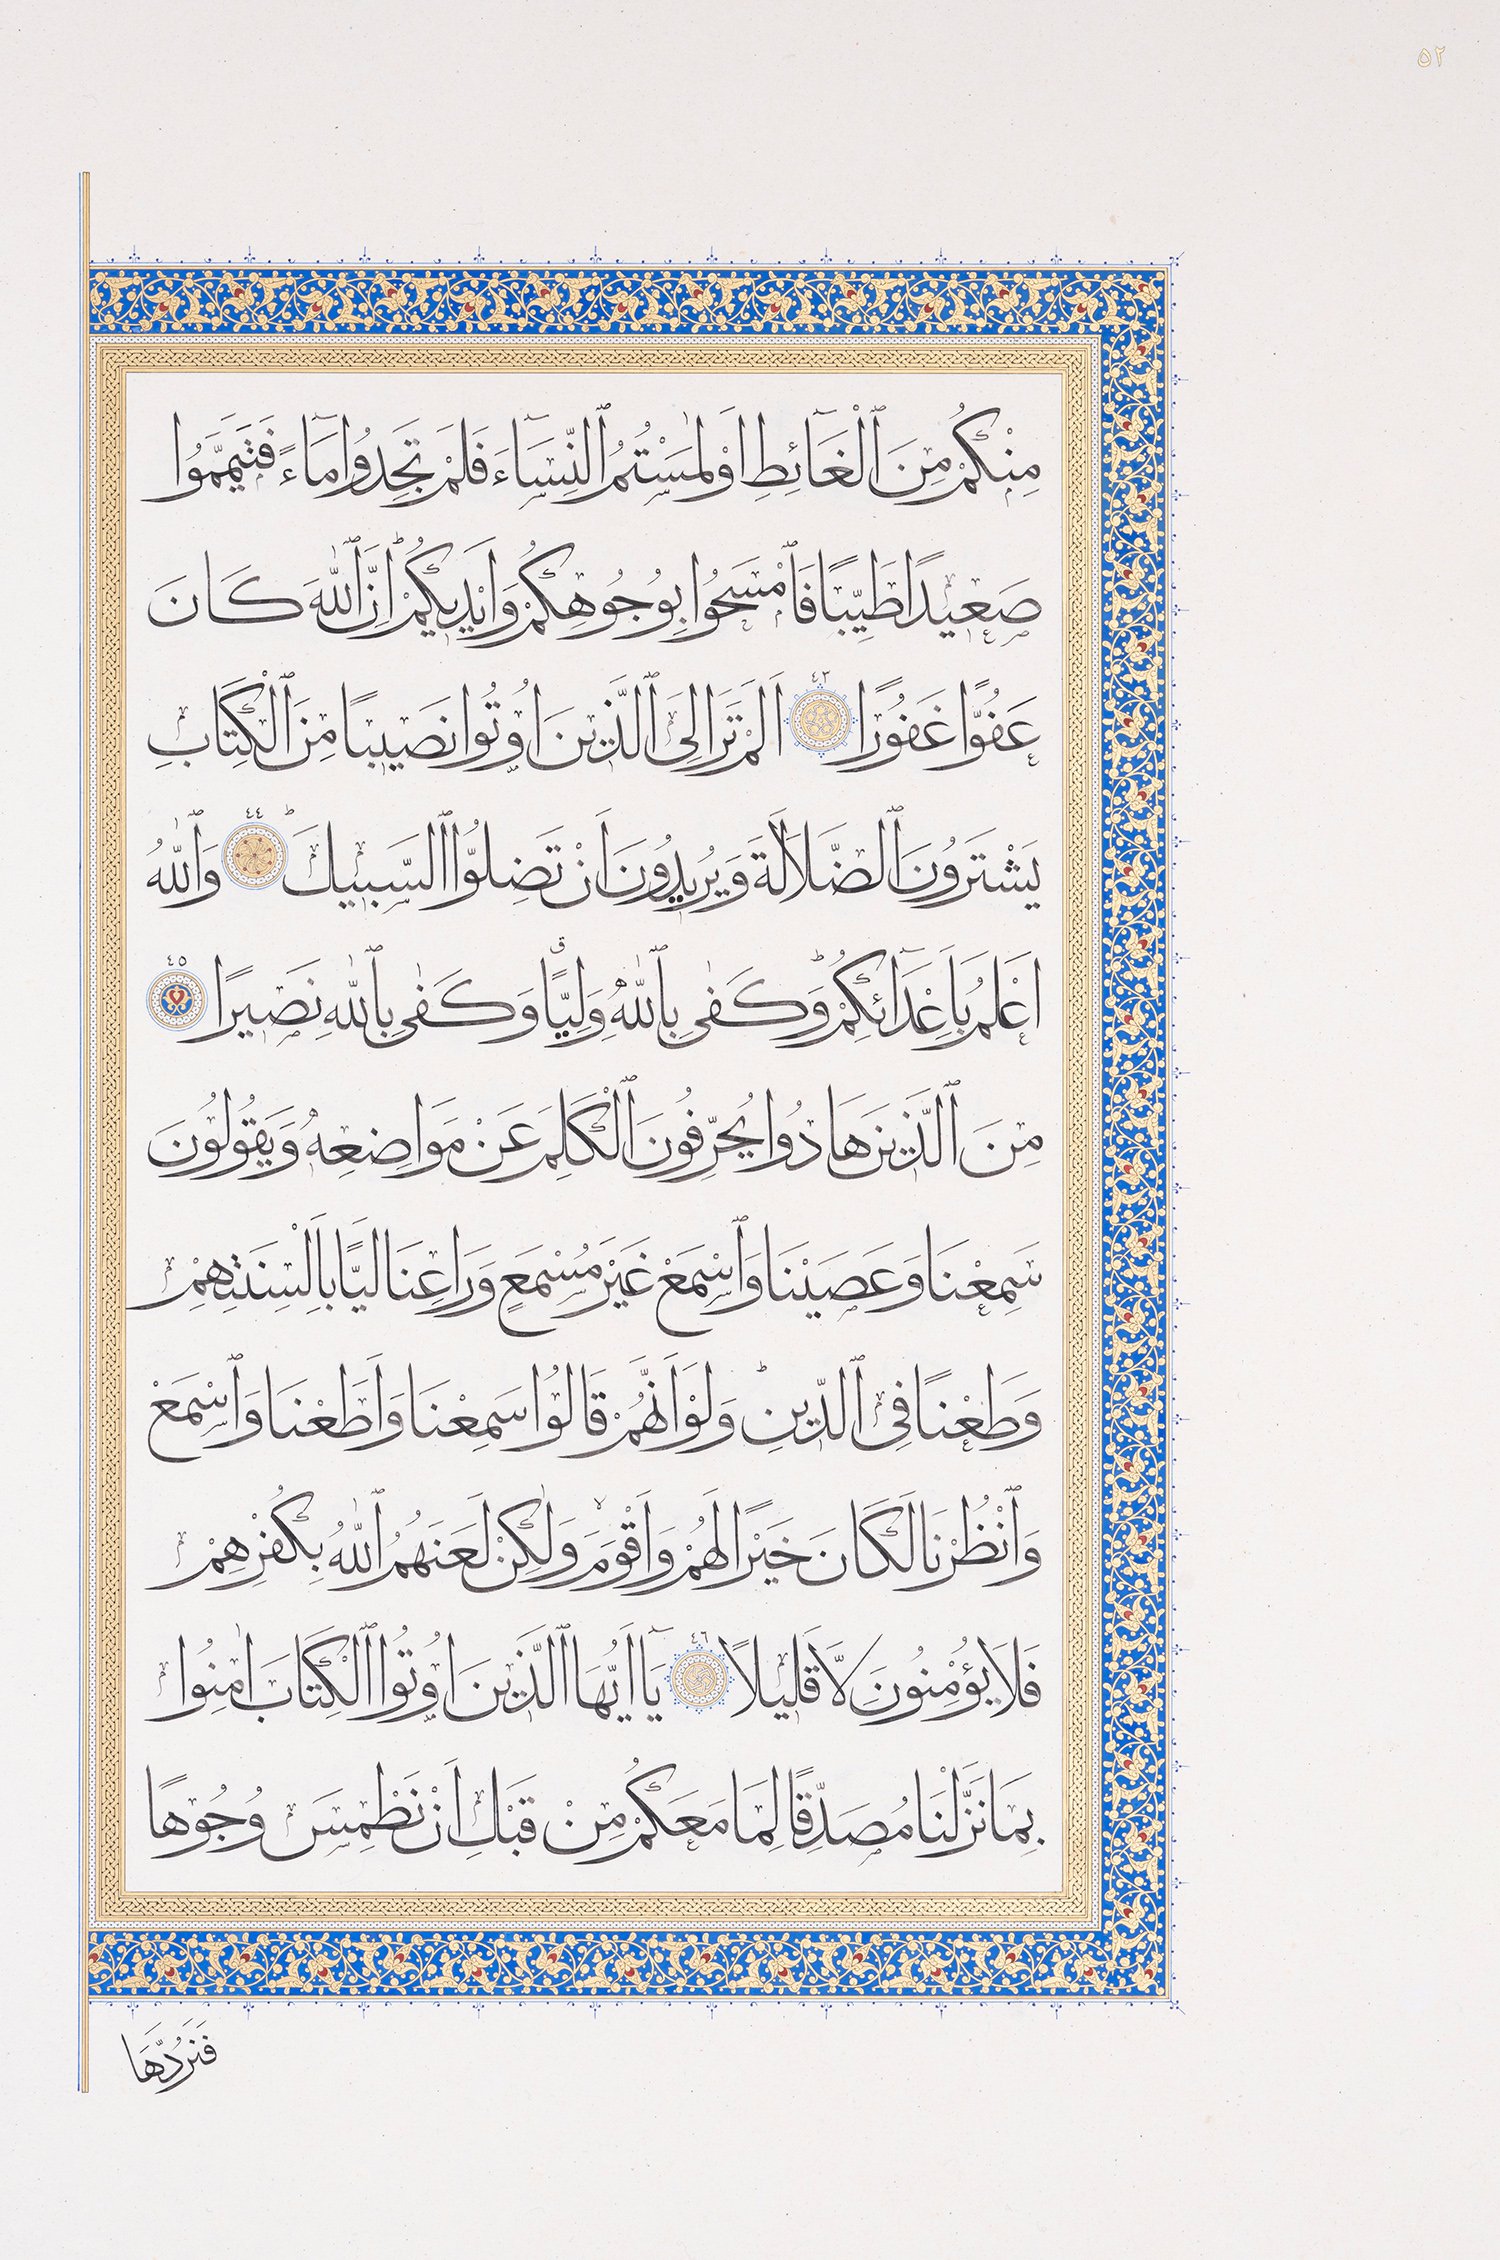 ٥٢
مِنْكُمْ مِنَ ٱلْغَآئِطِ اَوْ لٰمَسْتُمُ ٱلنِّسَآءَ فَلَمْ تَجِدُوا مَآءً فَتَيَمَّمُوا
صَعِيدًا طَيِّبًا فَٱمْسَحُوا بِوُجُوهِكُمْ وَاَيْدِيكُمْ ۜ اِنَّ ٱللّٰهَ كَانَ
عَفُوًّا غَفُورًا ٤٣ اَلَمْ تَرَ اِلَى ٱلَّذِينَ اُو۫تُوا نَصِيبًا مِنَ ٱلْكِتَابِ
يَشْتَرُونَ ٱلضَّلَالَةَ وَيُرِيدُونَ اَنْ تَضِلُّوا ٱلسَّبِيلَ ۜ ٤٤ وَٱللّٰهُ
اَعْلَمُ بِاَعْدَآئِكُمْ ۜ وَكَفٰى بِٱللّٰهِ وَلِيًّا ۗ وَكَفٰى بِٱللّٰهِ نَصِيرًا ٤٥
مِنَ ٱلَّذِينَ هَادُوا يُحَرِّفُونَ ٱلْكَلِمَ عَنْ مَوَاضِعِهِ وَيَقُولُونَ
سَمِعْنَا وَعَصَيْنَا وَٱسْمَعْ غَيْرَ مُسْمَعٍ وَرَاعِنَا لَيًّا بِاَلْسِنَتِهِمْ
وَطَعْنًا فِى ٱلدِّينِ ۜ وَلَوْ اَنَّهُمْ قَالُوا سَمِعْنَا وَاَطَعْنَا وَٱسْمَعْ
وَٱنْظُرْنَا لَكَانَ خَيْرًا لَهُمْ وَاَقْوَمَ ۙ وَلٰكِنْ لَعَنَهُمُ ٱللّٰهُ بِكُفْرِهِمْ
فَلَا يُؤْمِنُونَ اِلَّا قَلِيلًا ٤٦ يَآ اَيُّهَا ٱلَّذِينَ اُو۫تُوا ٱلْكِتَابَ اٰمِنُوا
بِمَا نَزَّلْنَا مُصَدِّقًا لِمَا مَعَكُمْ مِنْ قَبْلِ اَنْ نَطْمِسَ وُجُوهًا
فَنَرُدَّهَا